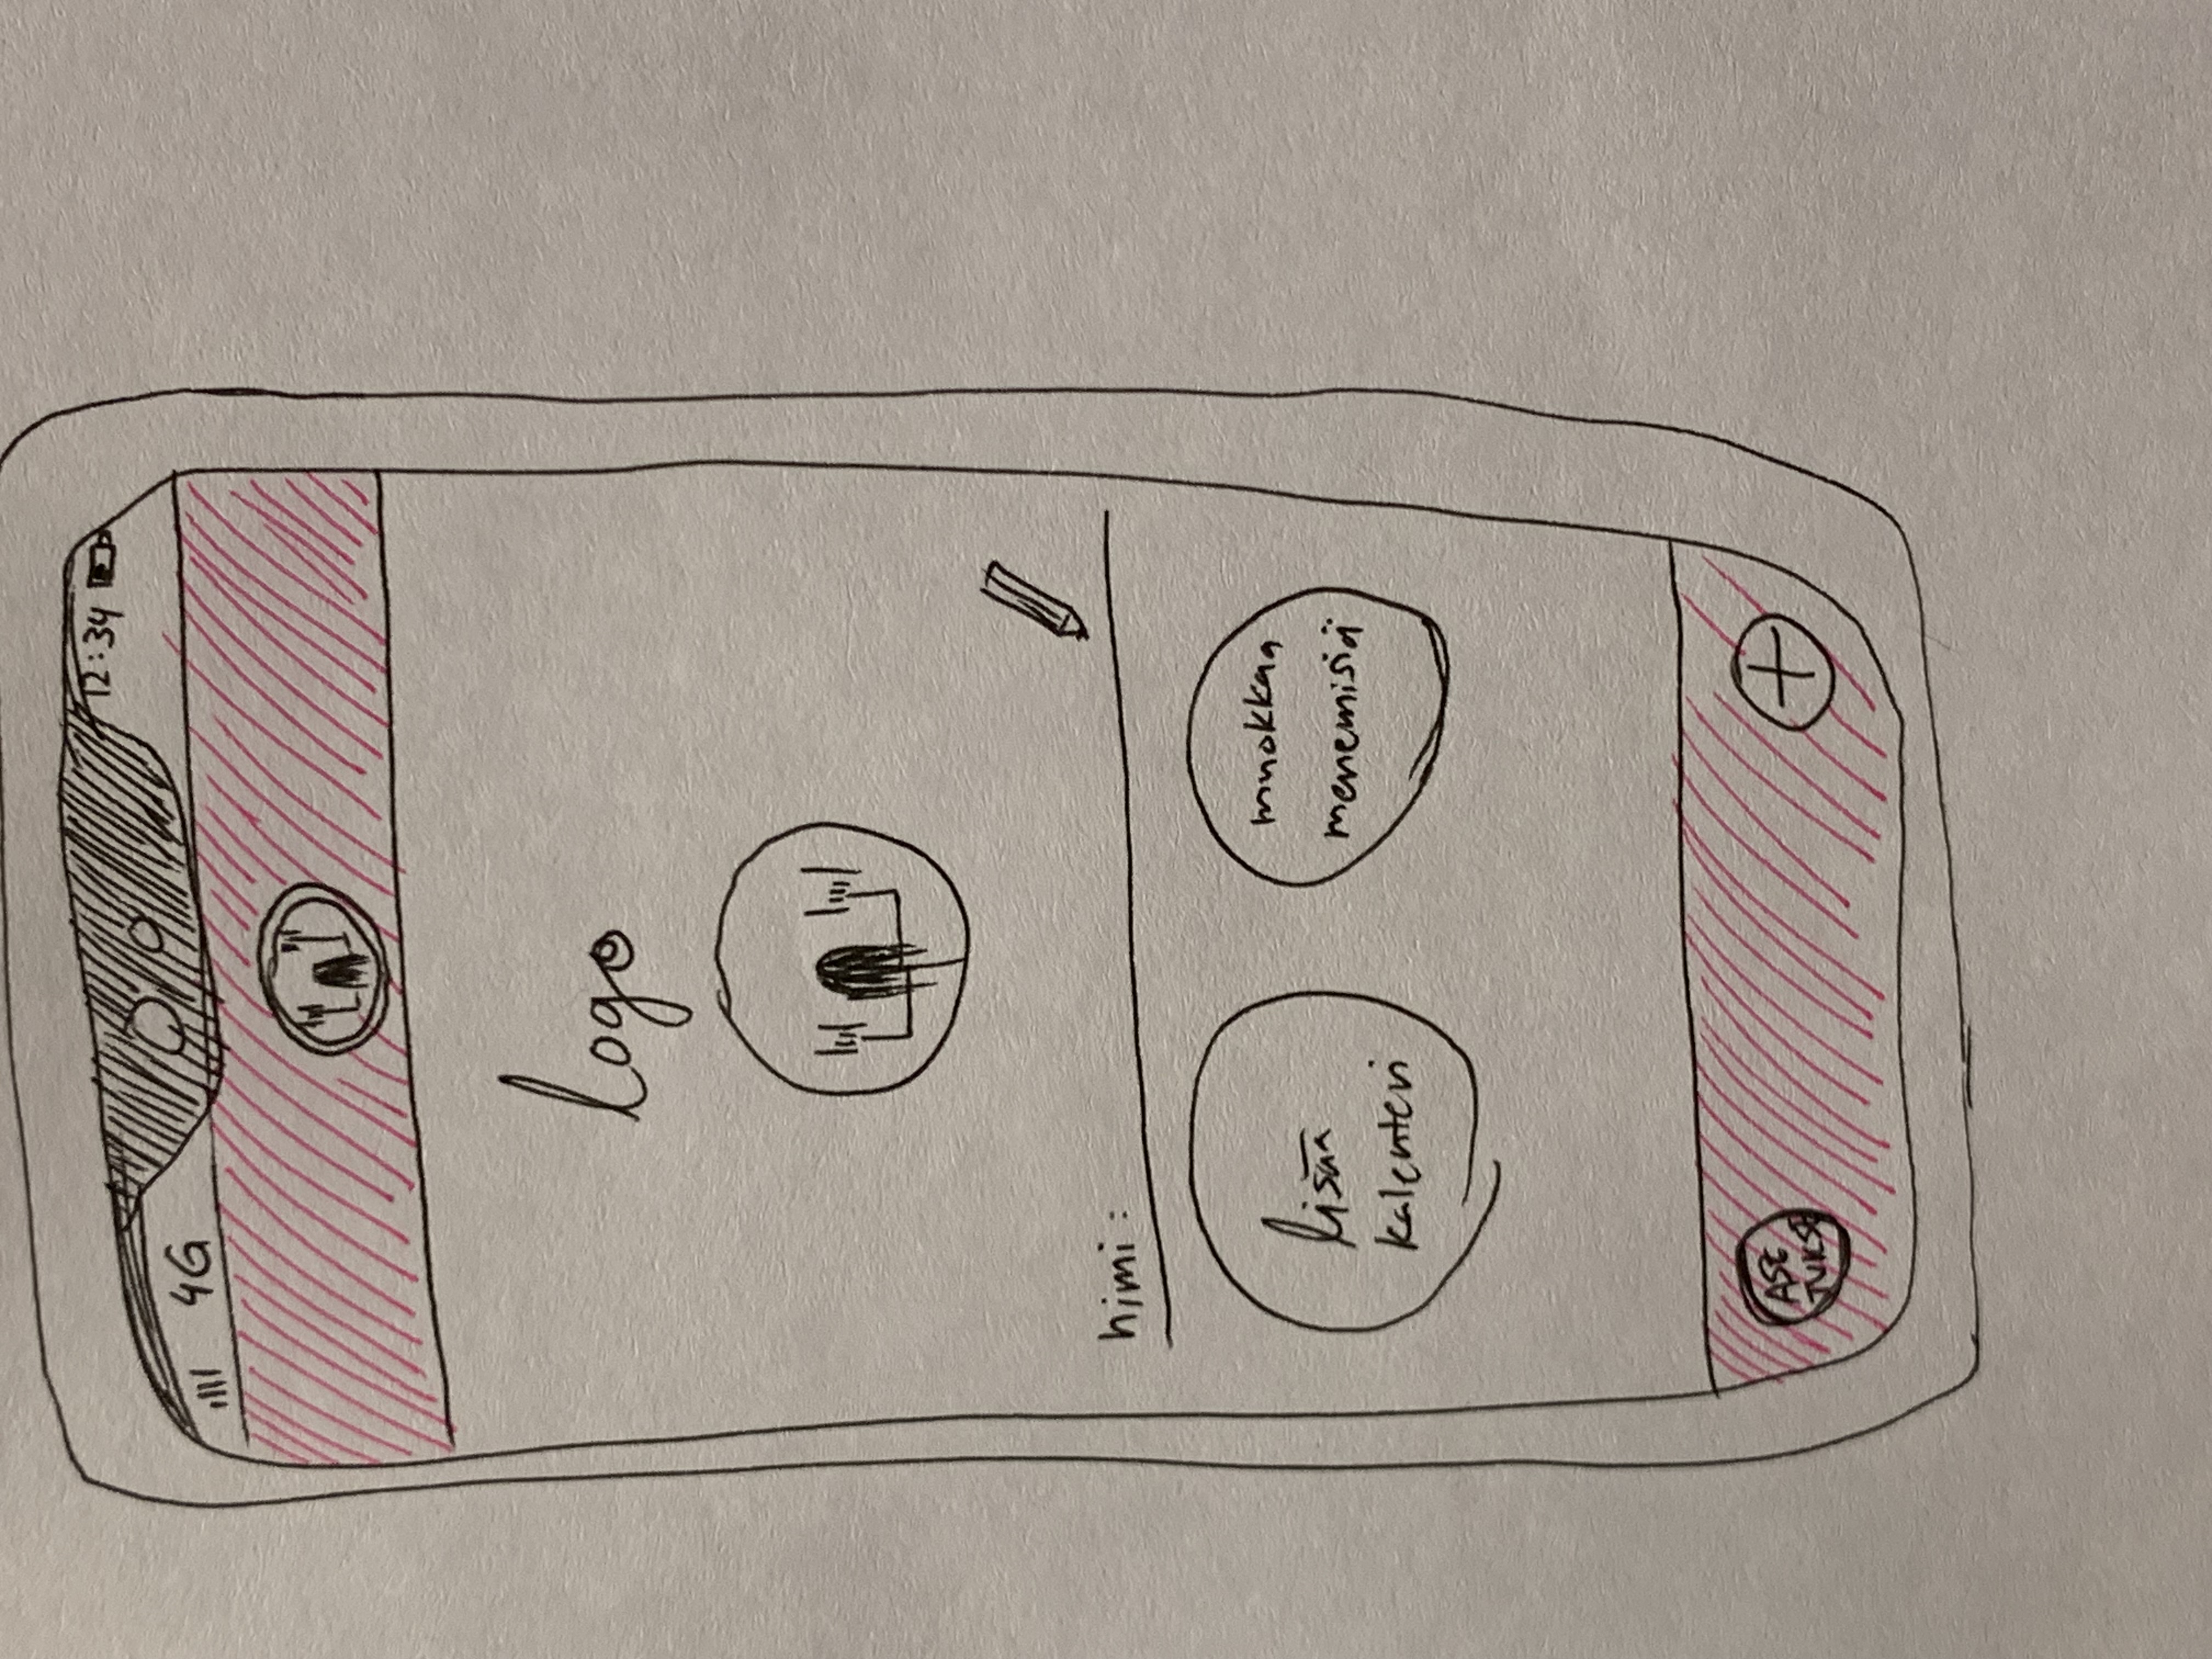 4G
12:34
logo
nimi:
lisää
kalenteri
muokkaa
menemisiä
ASE
TUKSE
+